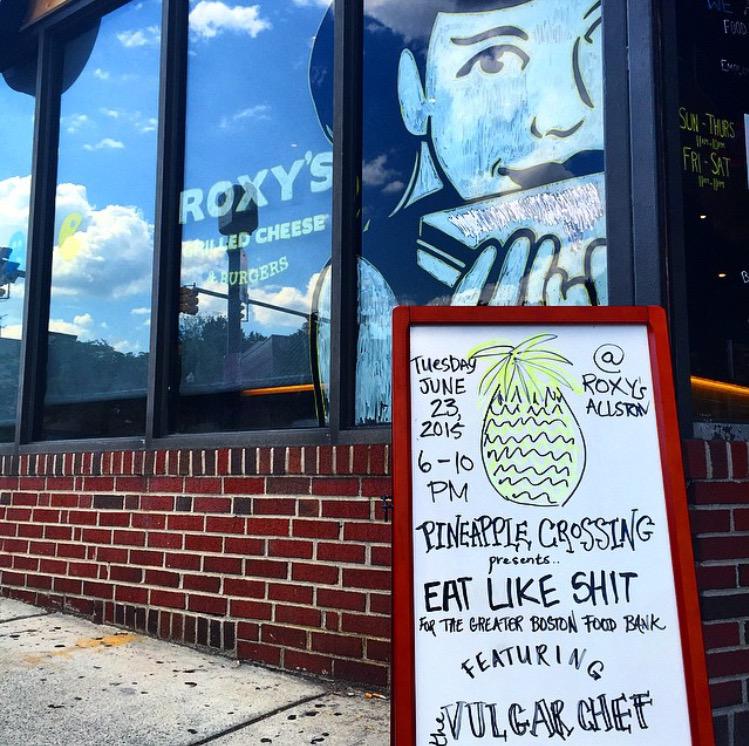 ROXY'S
GRILLED CHEESE
& BURGERS
WE
FOOD
SUN-THURS
11am-10pm
FRI-SAT
11am-11pm
TUESDAY
JUNE
23,
2015
6-10
PM
@
ROXY'S
ALLSTON
PINEAPPLE CROSSING
presents..
EAT LIKE SHIT
FOR THE GREATER BOSTON FOOD BANK
FEATURING
the VULGAR CHEF